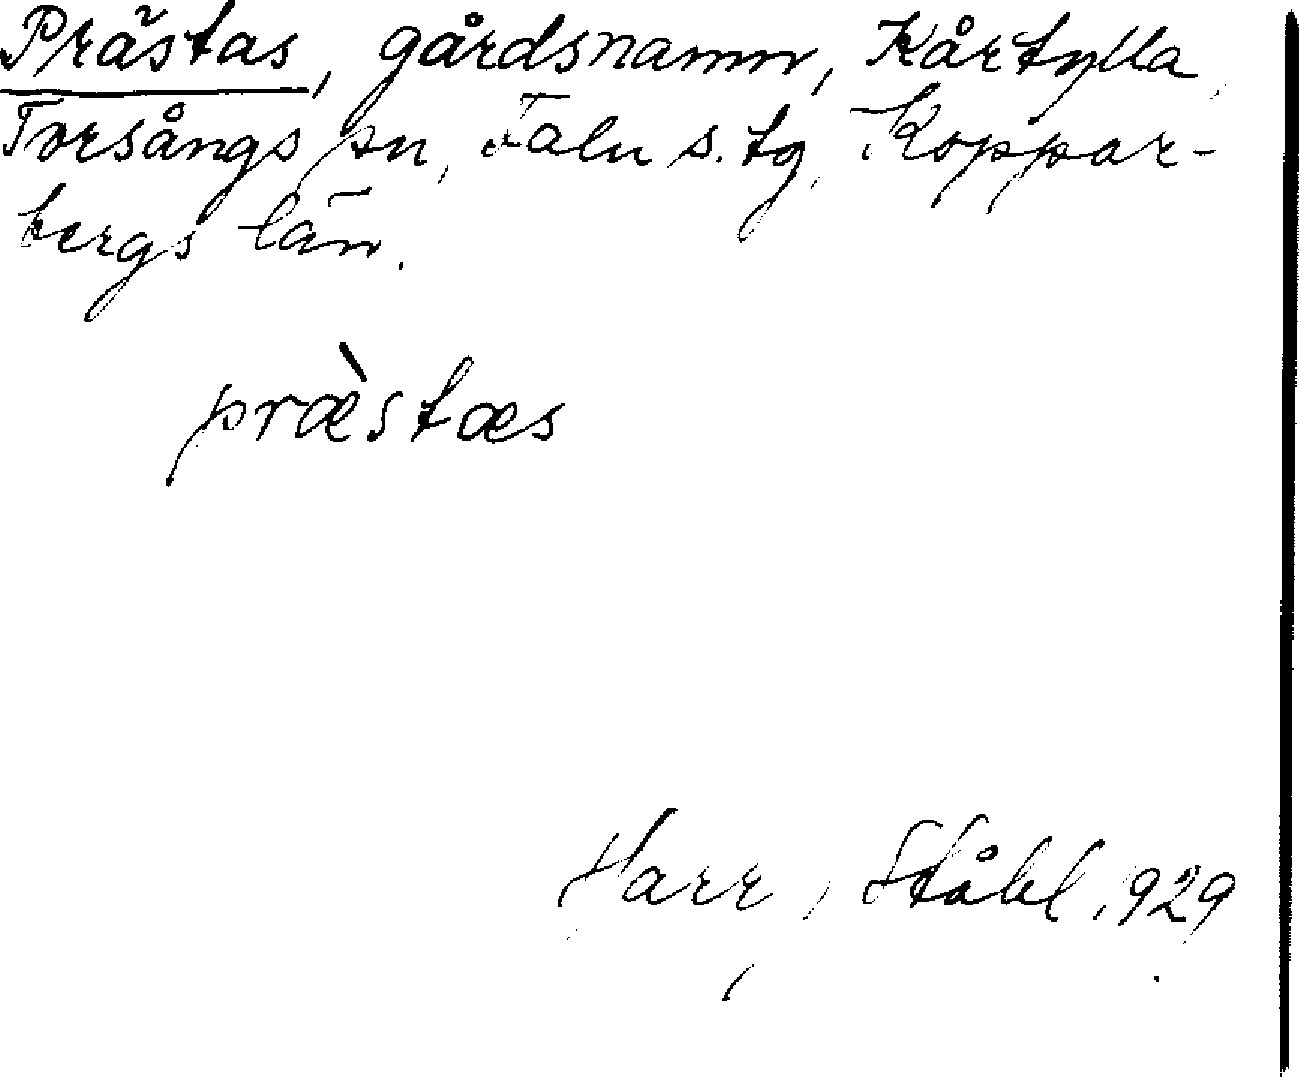 Prästas, gårdsnamn, Kårtylla,
Torsångs sn, Falu s. tg, Koppar-
bergs län.
præ̀stæs
Harr, Ståhl, 929